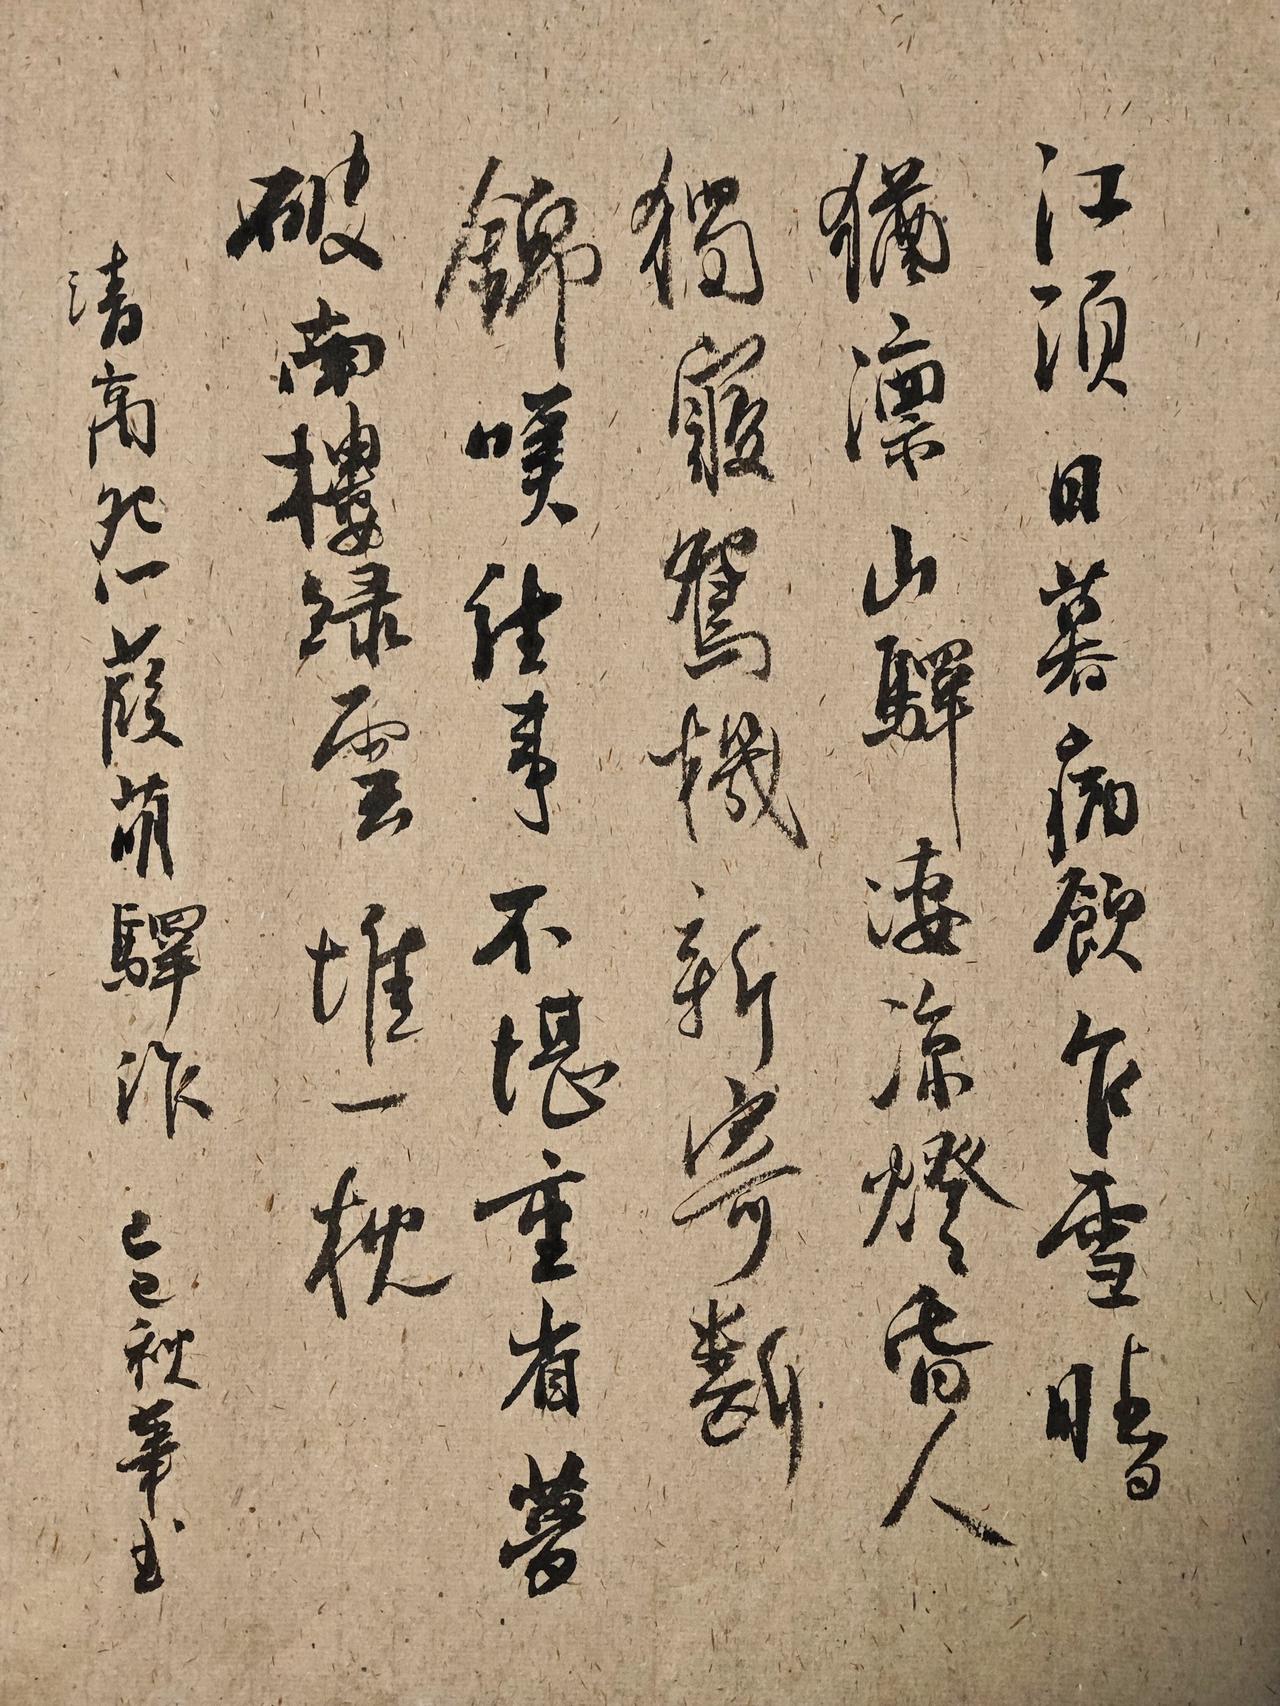 江頭日暮痛飲乍雪晴
猶凛山驛凄凉燈昏人
獨寢鴛機新寄斷
錦嘆往事不堪重省夢
破南樓緑雲堆一枕
清商怨葭萌驛作 乙巳秋華书